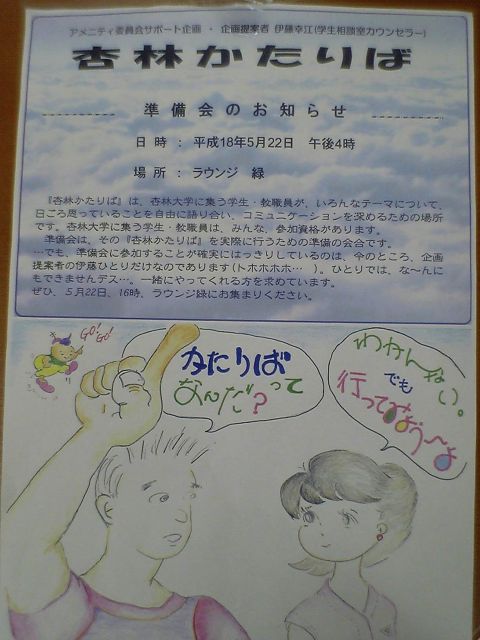 アメニティ委員会サポート企画 ・ 企画提案者 伊藤幸江(学生相談室カウンセラー)
杏林かたりば
準備会のお知らせ
日時:平成18年5月22日 午後4時
場所:ラウンジ 緑
『杏林かたりば』は、杏林大学に集う学生・教職員が、いろんなテーマについて、
日ごろ思っていることを自由に語り合い、コミュニケーションを深めるための場所
です。杏林大学に集う学生・教職員は、みんな、参加資格があります。
準備会は、その『杏林かたりば』を実際に行うための準備の会合です。
…でも、準備会に参加することが確実にはっきりしているのは、今のところ、企画
提案者の伊藤ひとりだけなのであります(トホホホホ… )。ひとりでは、な~んに
もできませんデス…。一緒にやってくれる方を求めています。
ぜひ、5月22日、16時、ラウンジ緑にお集まりください。
GO! GO!
かたりば
なんだ?って
わかんない。
でも
行ってみよう~よ